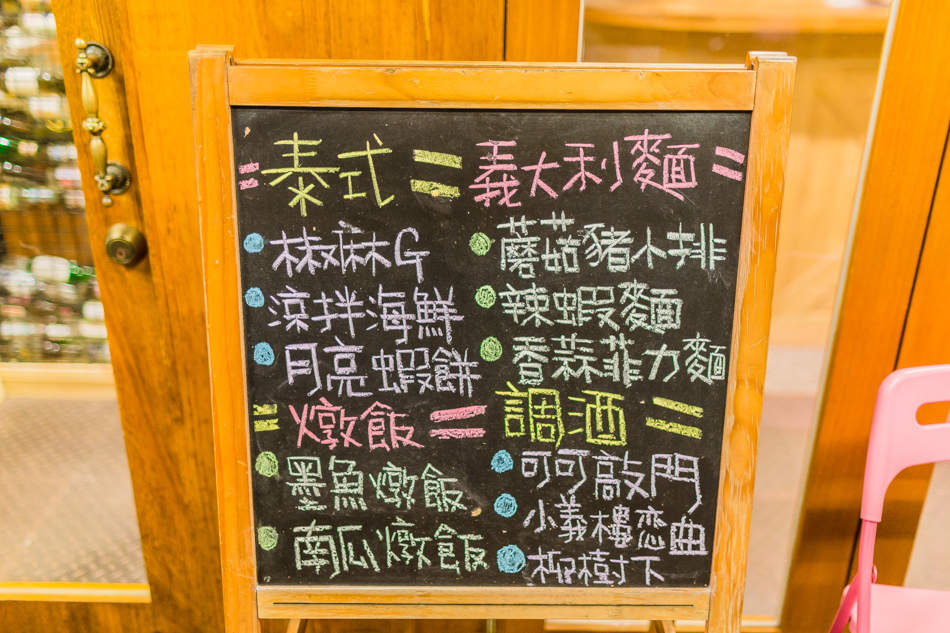 泰式
椒麻G
涼拌海鮮
月亮蝦餅
燉飯
墨魚燉飯
南瓜燉飯
義大利麵
蘑菇豬小排
辣蝦麵
香蒜菲力麵
調酒
可可敲門
小義樓恋曲
柳樹下